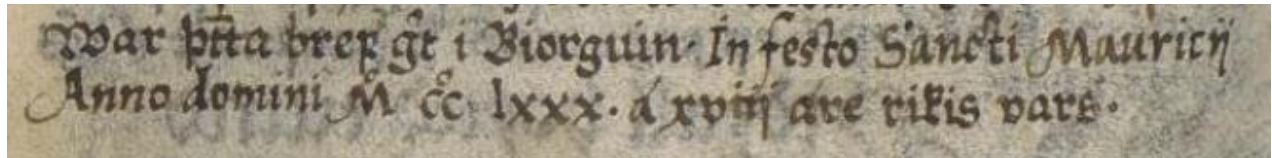 War þtta breꝼ gͦt i Biorguin. In festo Sancti Mauricij
Anno domini Mͦ cͦc lxxx. a xviij are rikis vars.